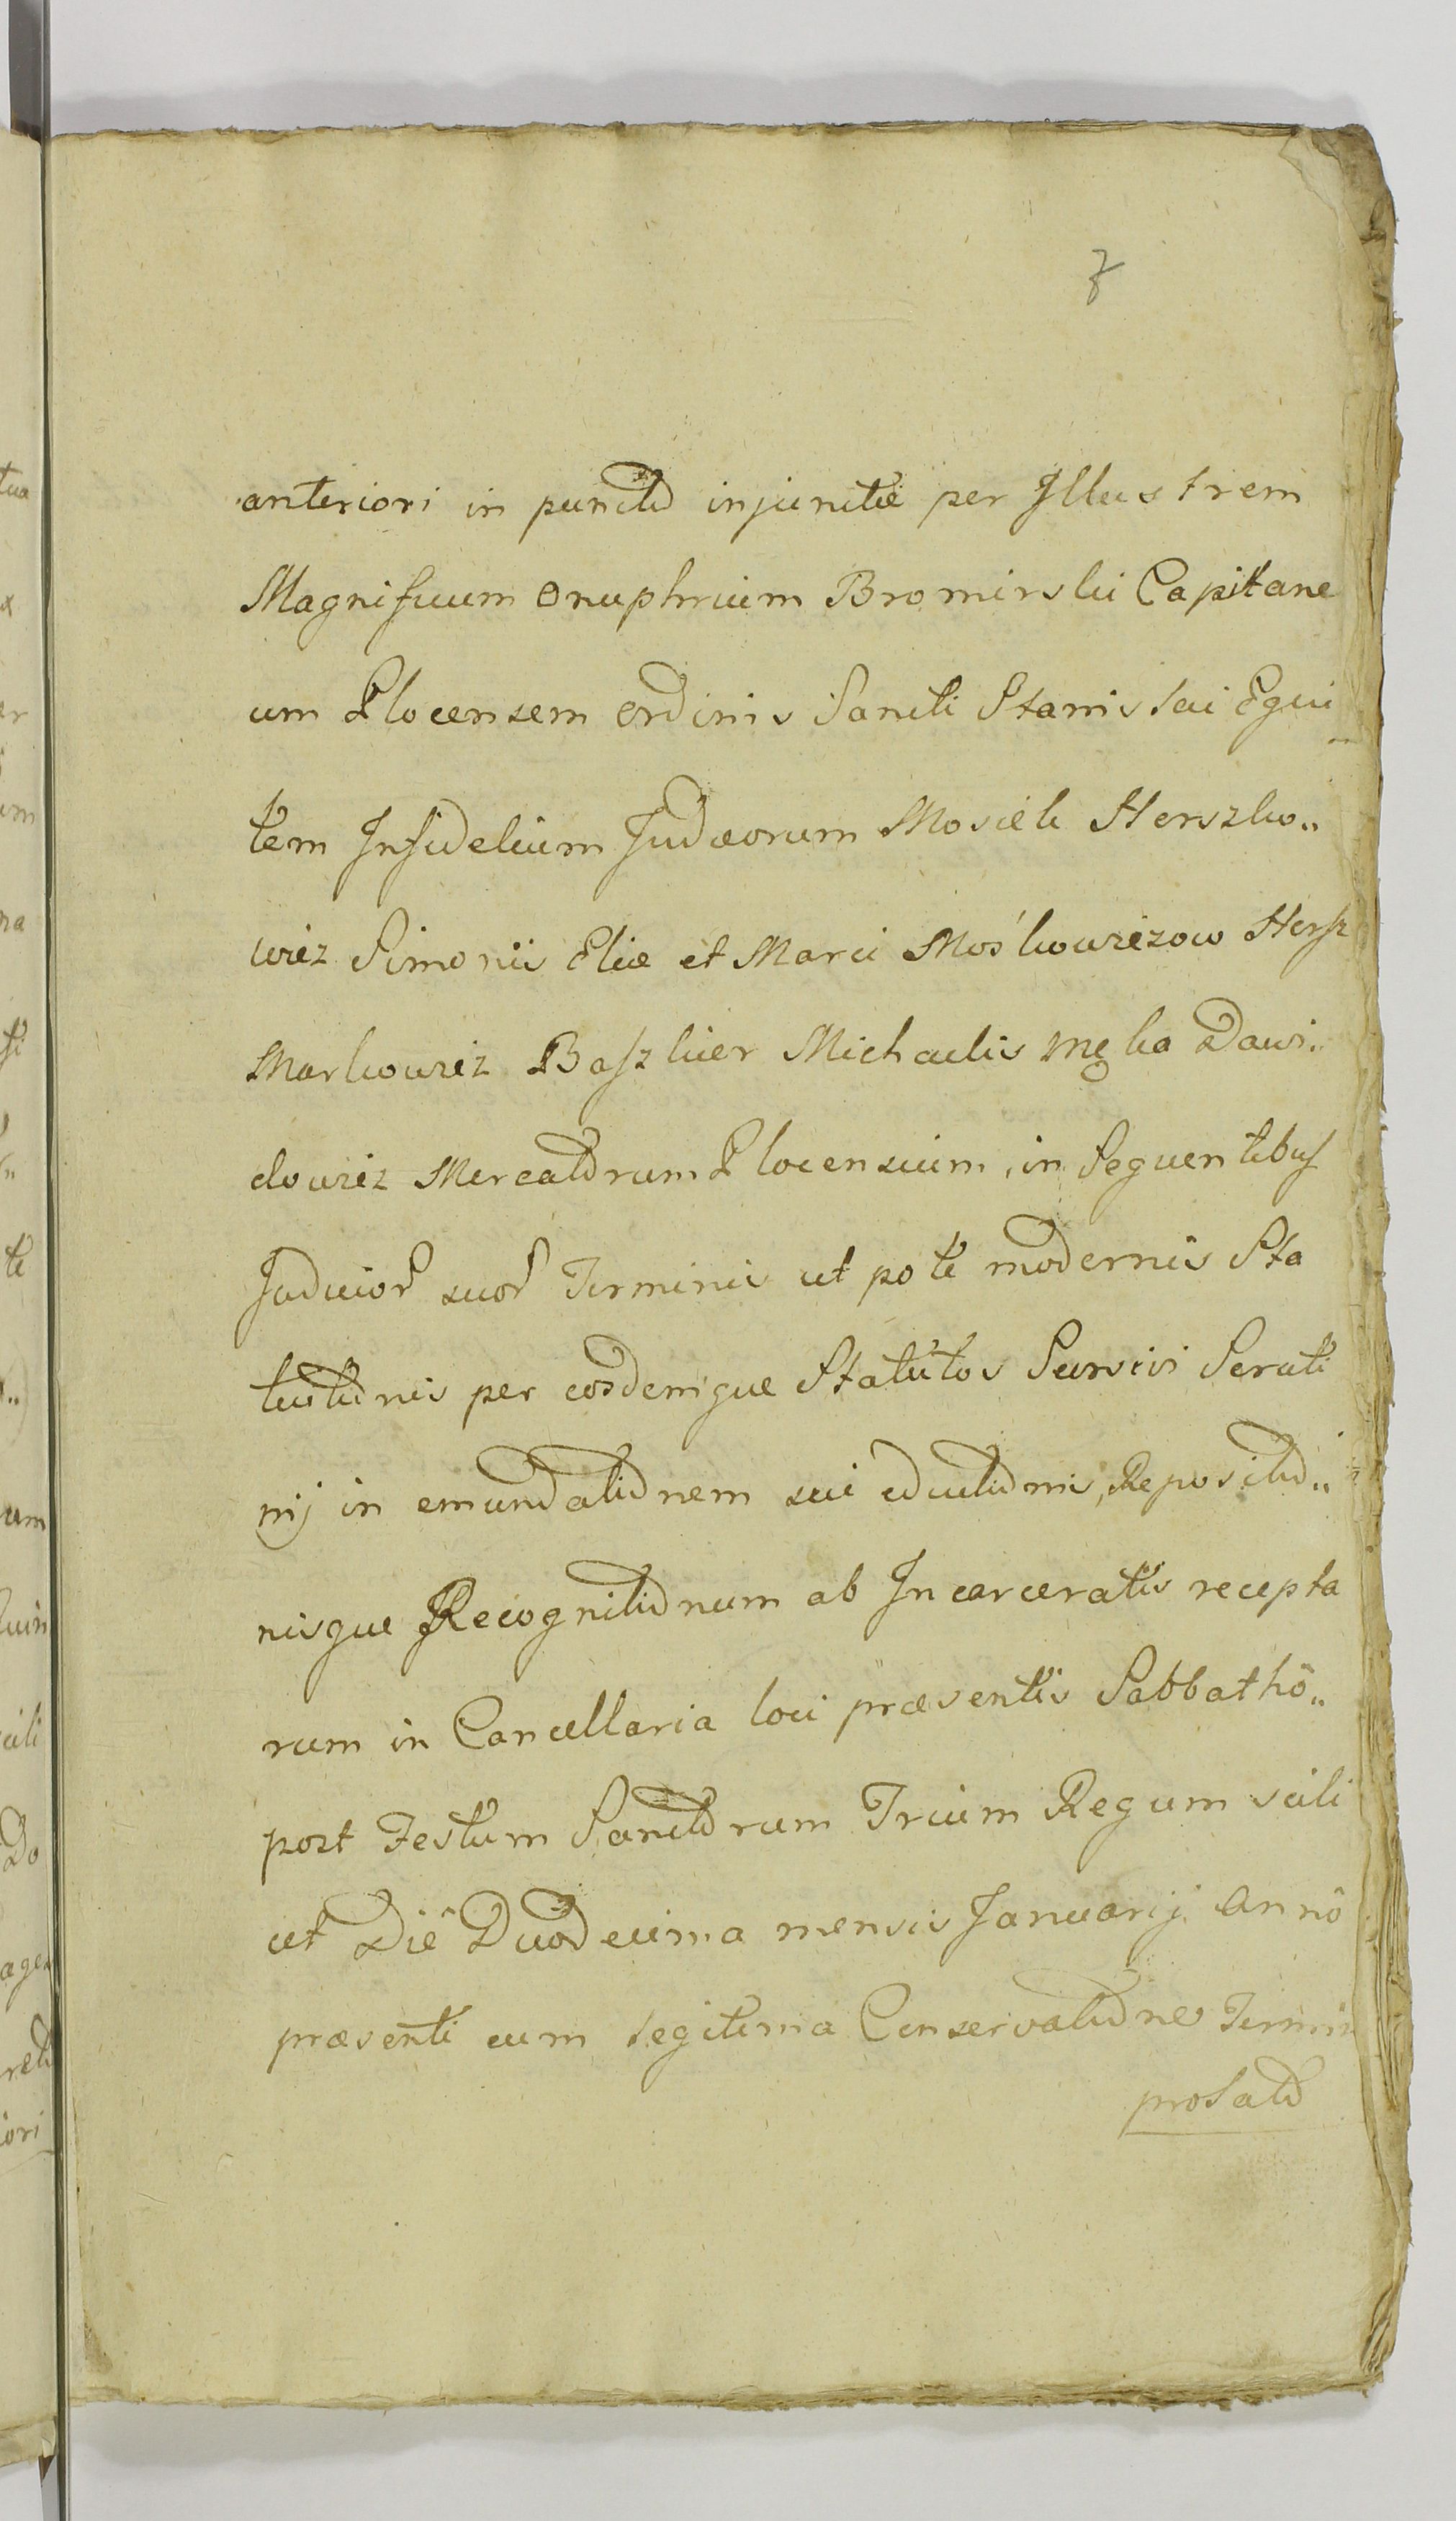 7
anteriori in puncto injunctæ per Illustrem
Magnificum Onuphrium Bromirski Capitane
um Plocensem Ordinis Sancti Stanislai Equi
tem Infidelium Judæorum Mosiek Herszko„
wicz Simonis Eliæ et Marci Mośkowiczow Hersz
Markowicz Baszkier Michaelis Męka Dawi„
dowicz Mercatorum Plocensium, in Sequentibus
Judicior suor Terminis ut pote modernis Sta
tutionis per eosdemque Statutos Sursivi Scruti
nij in emundationem sui eductionis, Repositio„
nisque Recognitionum ab Incarceratis recepta
rum in Cancellaria loci præsentis Sabbathô„
post Festum Sanctorum Trium Regum scili
cet Diê Duodecima mensis Januarij Annô
præsenti cum legitima Conservatione Termin
prolato